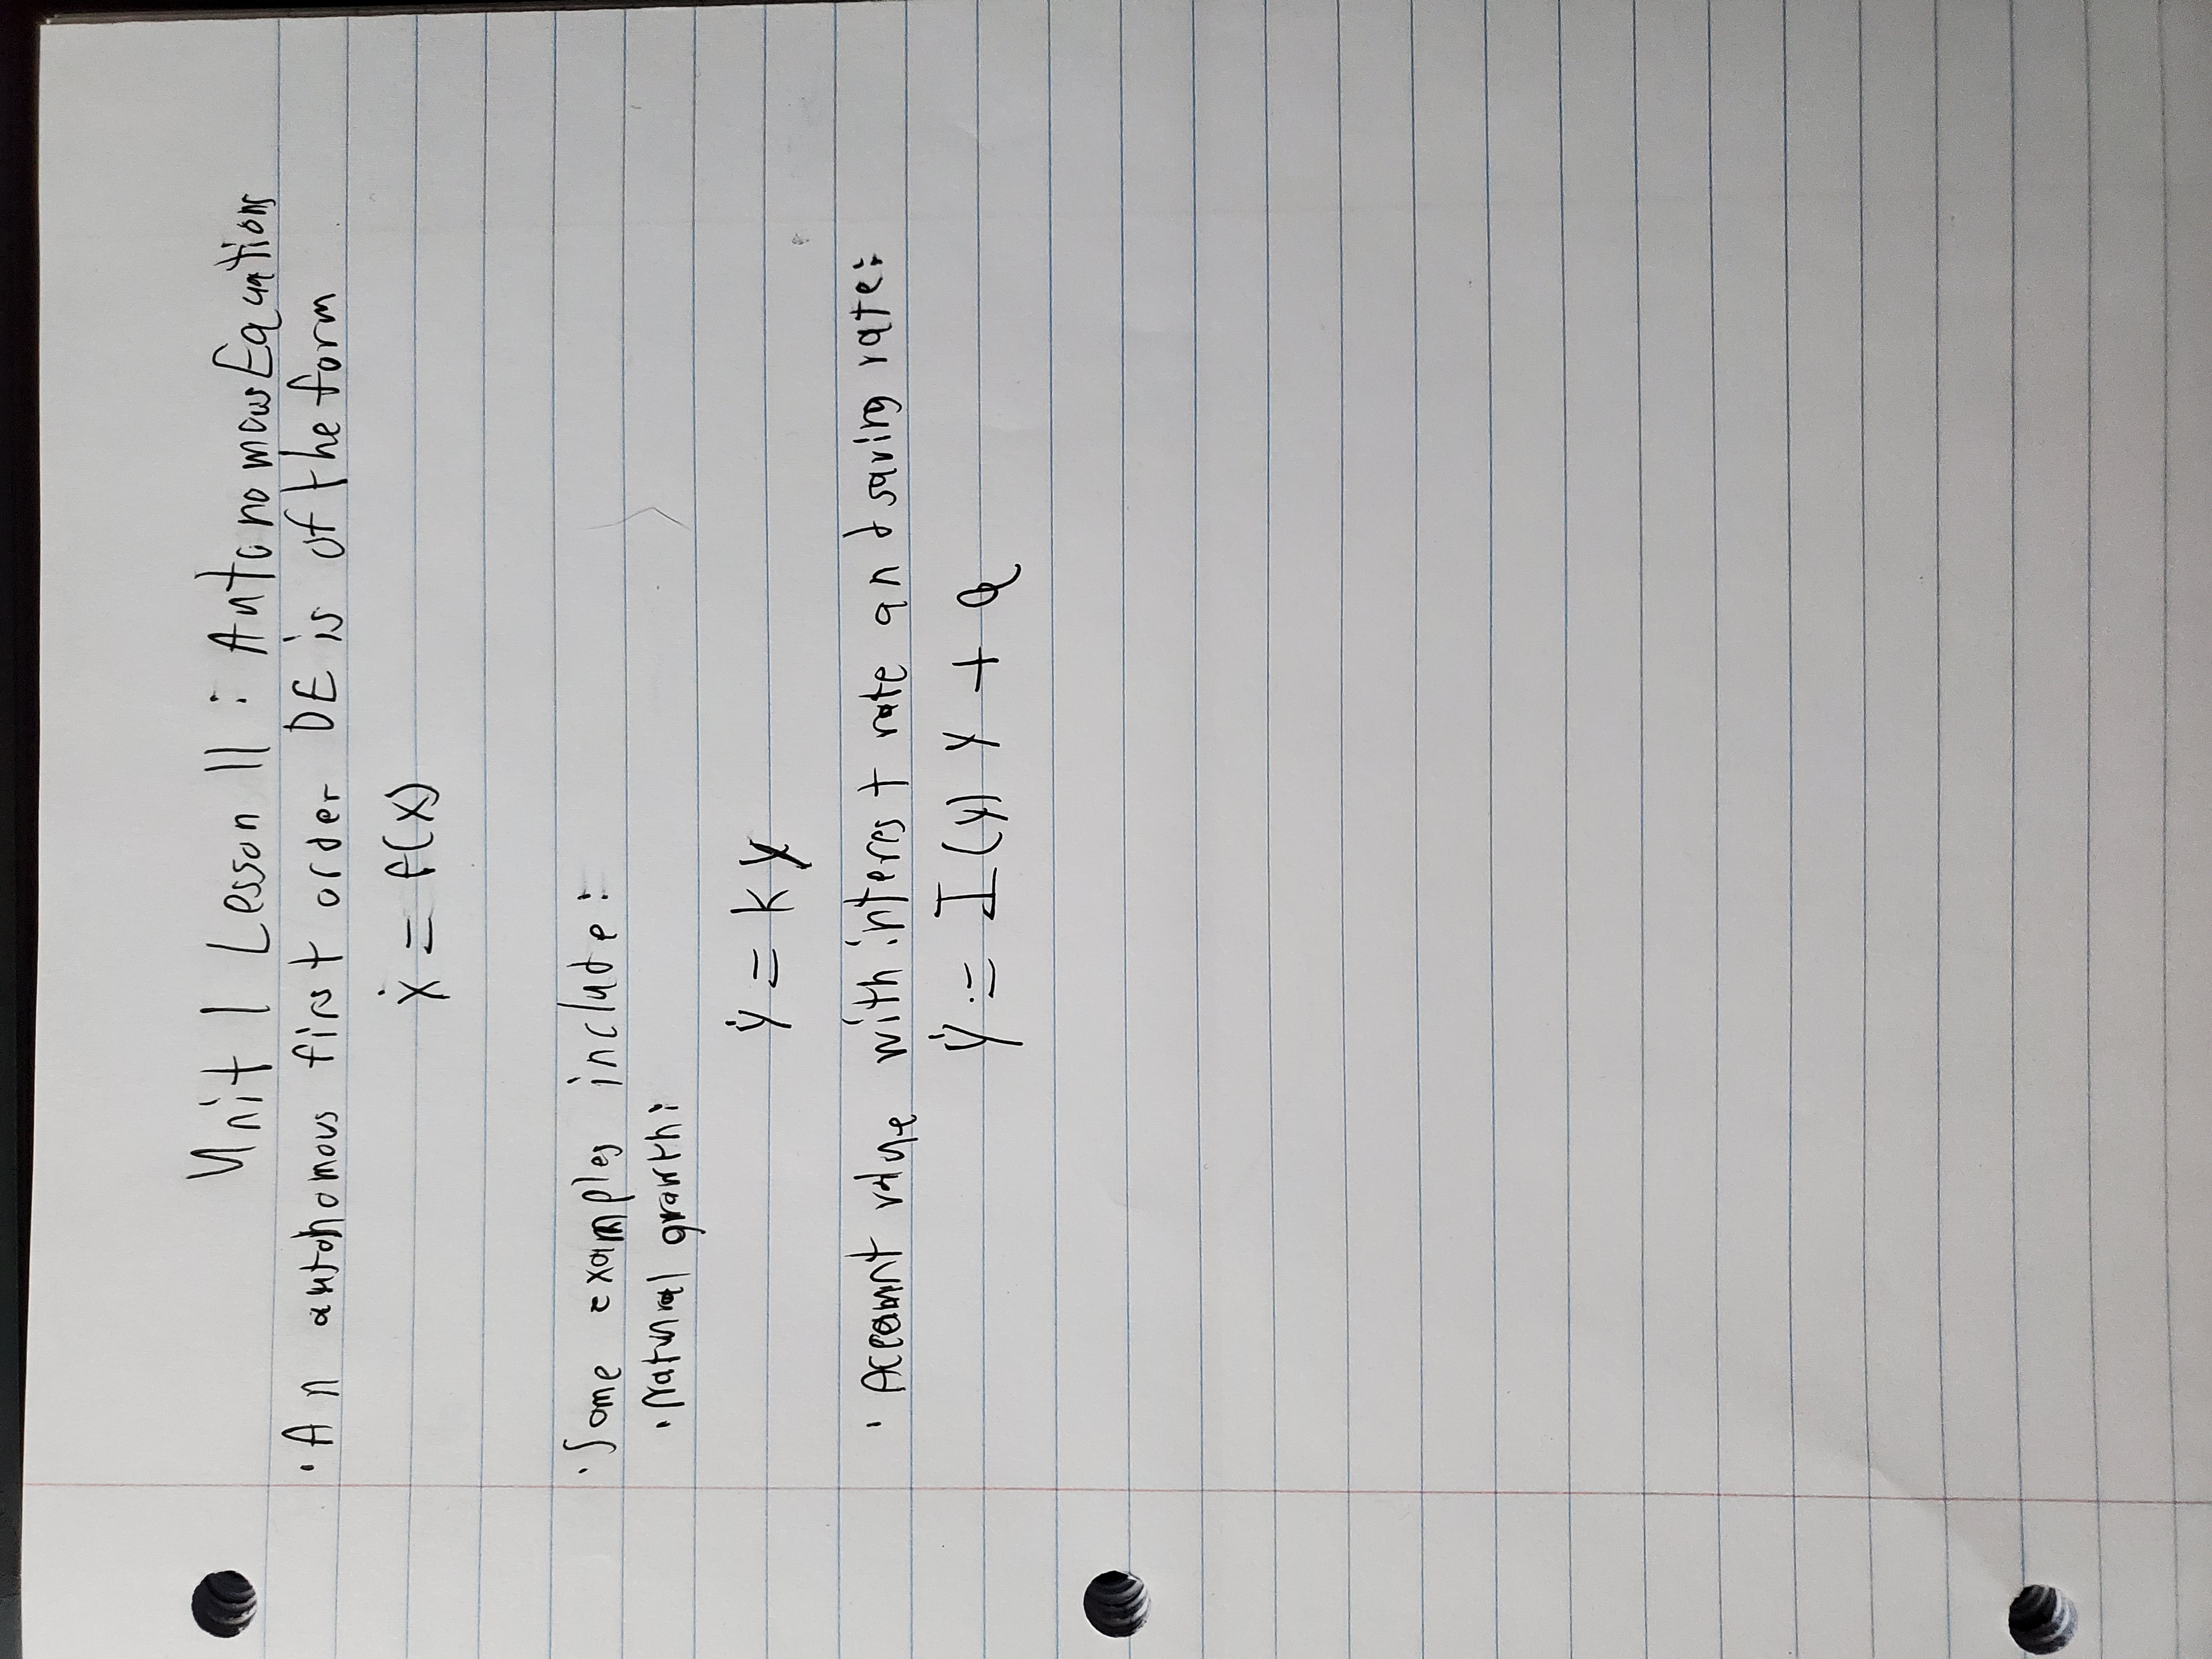 Unit 1 Lesson 11 : Autonomous Equations
· An autonomous first order DE is of the form
ẋ = f(x)
· Some examples include:
· Natural growth:
ẏ = ky
· Account value with interest rate and saving rate:
ẏ = I(y) y + q